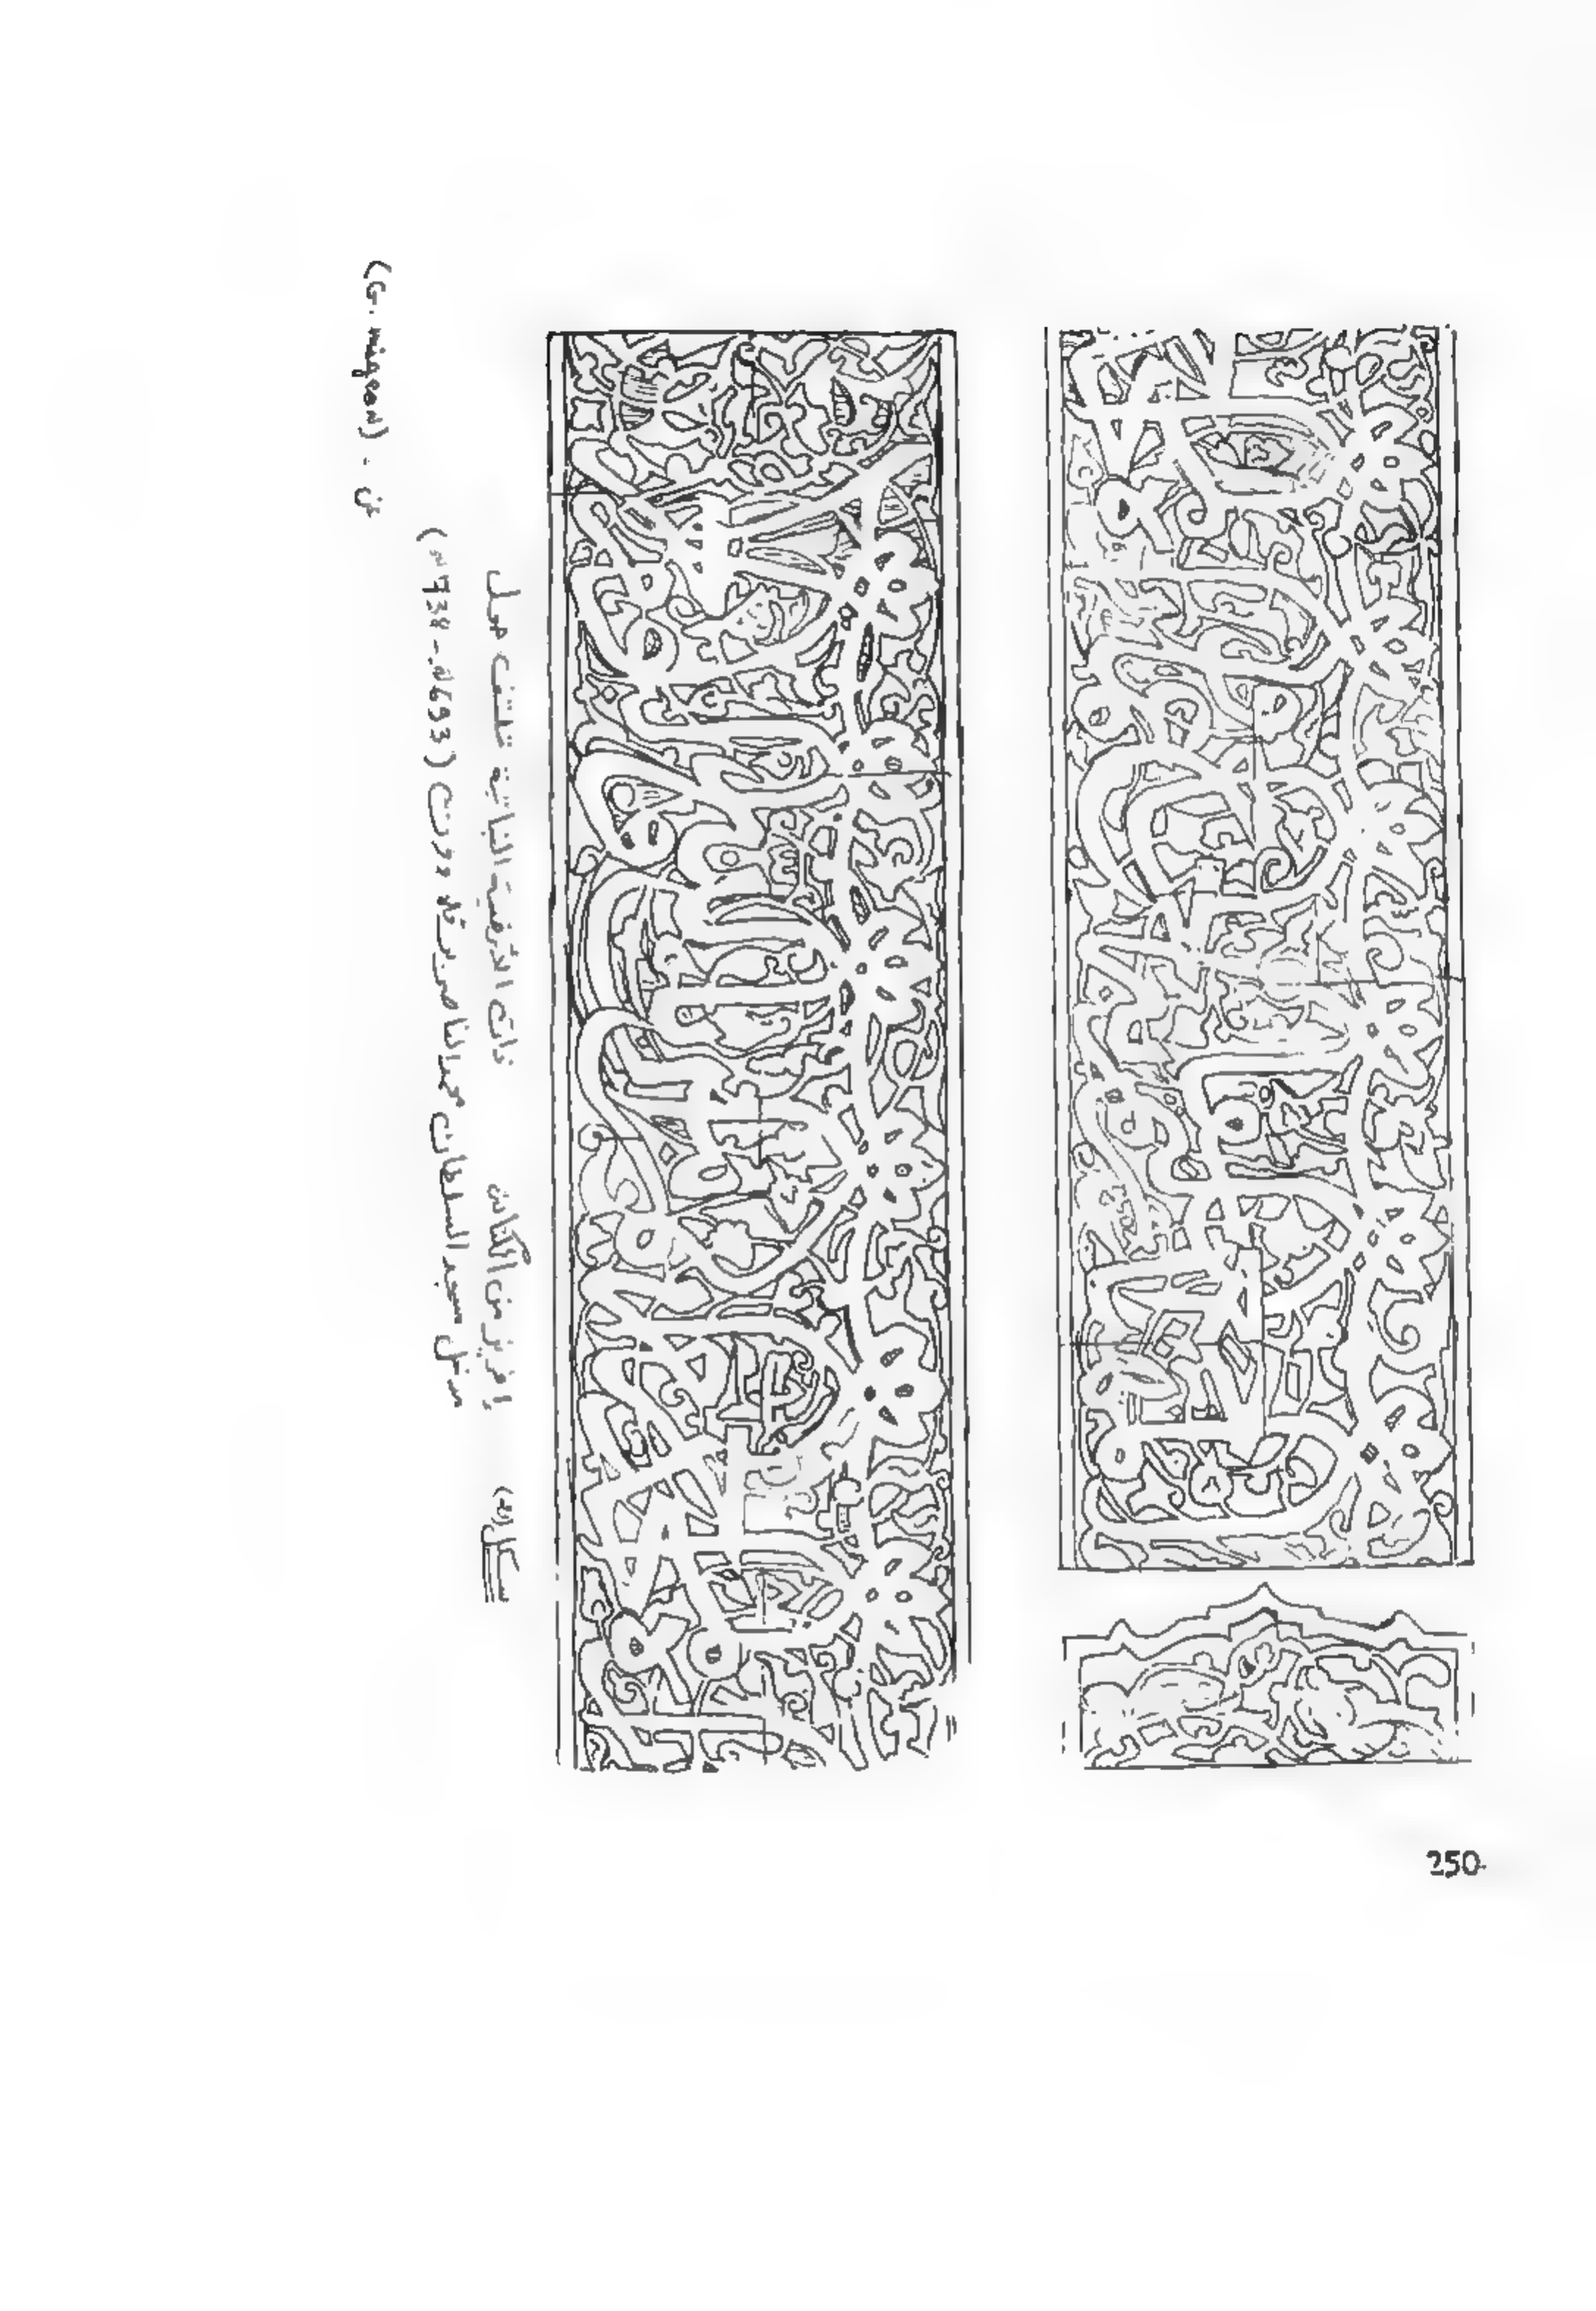 شكل (٧٤)
إفريز من الكتابات ذات الأرضية النباتية تلتف حول
مدخل مسجد السلطان محمد الناصر بن قلاوون (693هـ - 738هـ)
عن (G. migeon).
250